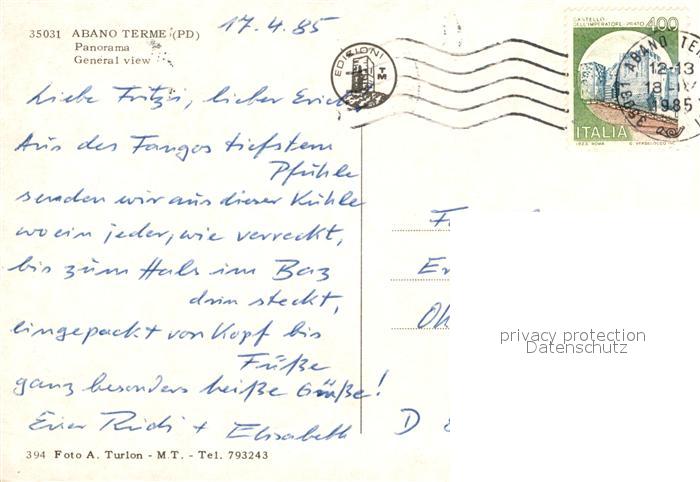 17.4.85
35031 ABANO TERME (PD)
Panorama
General view
Liebe Fritzi, lieber Erich
Aus des Fangos tiefstem
Pfühle
senden wir aus dieser Kühle
wo ein jeder, wie verreckt,
bis zum Hals im Baz
drin steckt,
eingepackt von Kopf bis
Füße
ganz besonders heiße Grüße!
Euer Rudi + Elisabeth
394 Foto A. Turlon - M.T. - Tel. 793243
EDIZIONI
TM
CASTELLO
DELL'IMPERATORE - PRATO 400
ITALIA
ABANO TE
12-13
1985
F
Er
D
privacy protection
Datenschutz